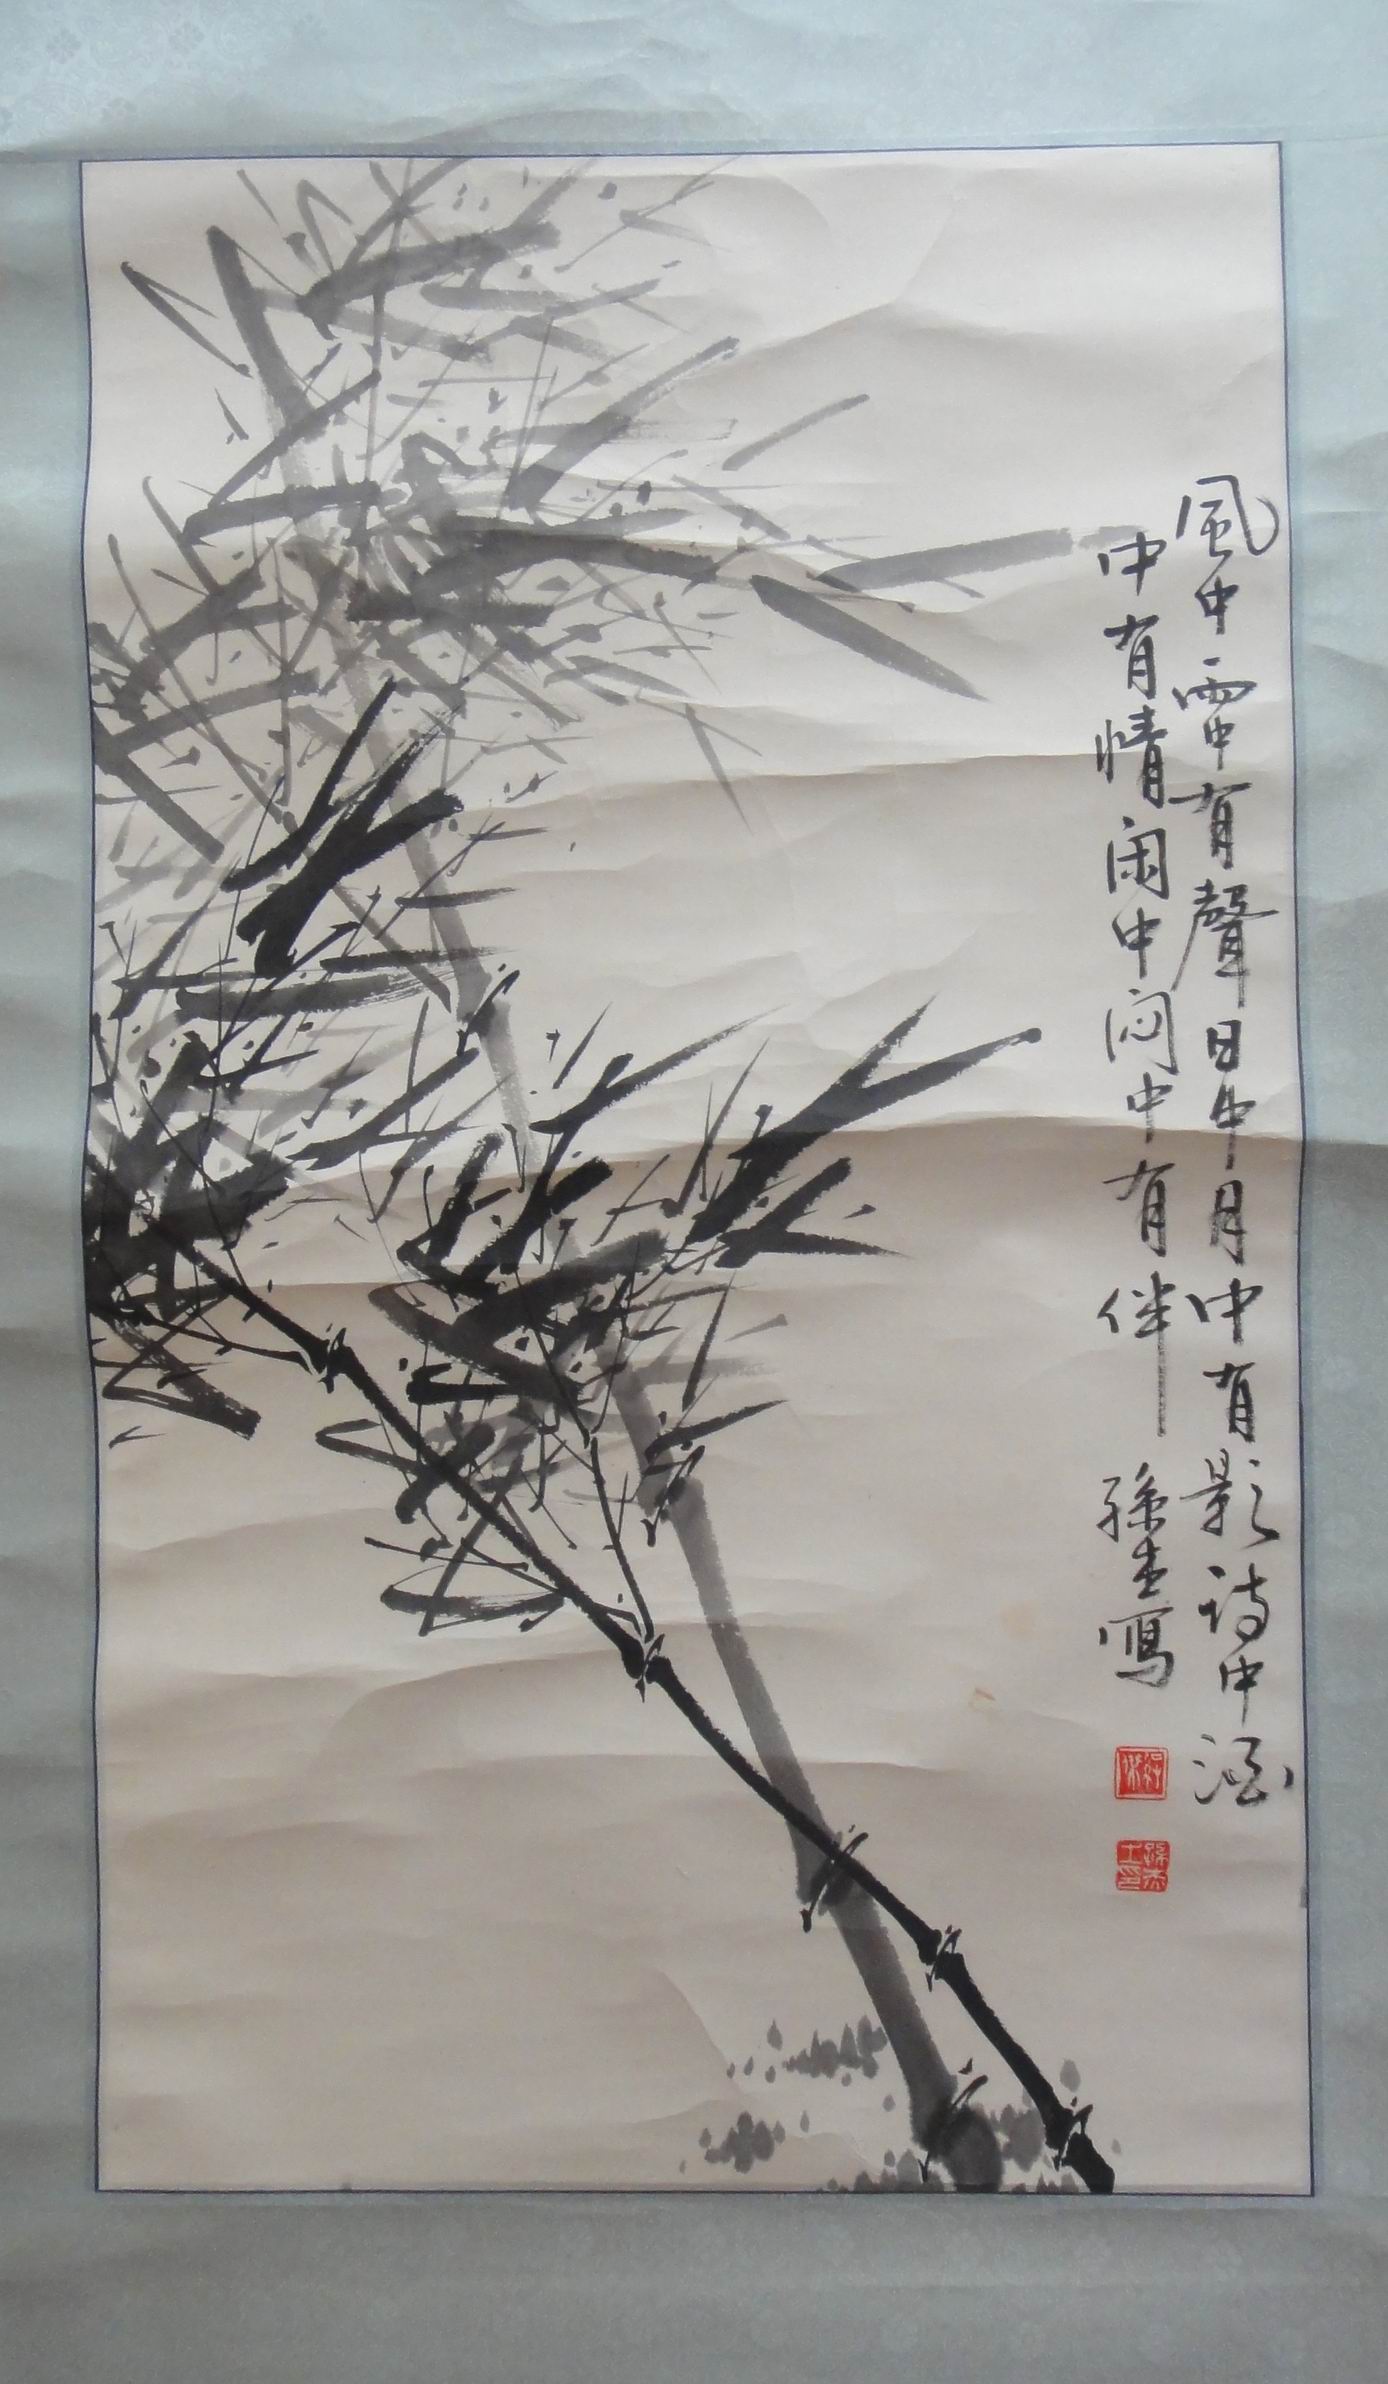 風中雨中有聲日中月中有影詩中酒
中有情闲中闷中有伴 孫杰寫